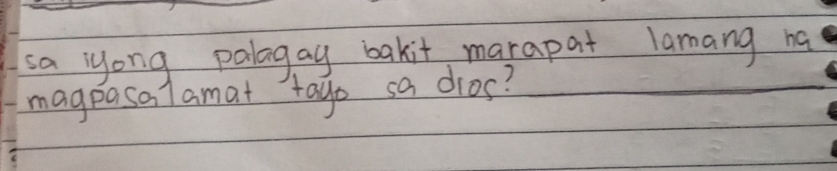 sa iyong palagay bakit marapat lamang na
magpasalamat tayo sa dios?